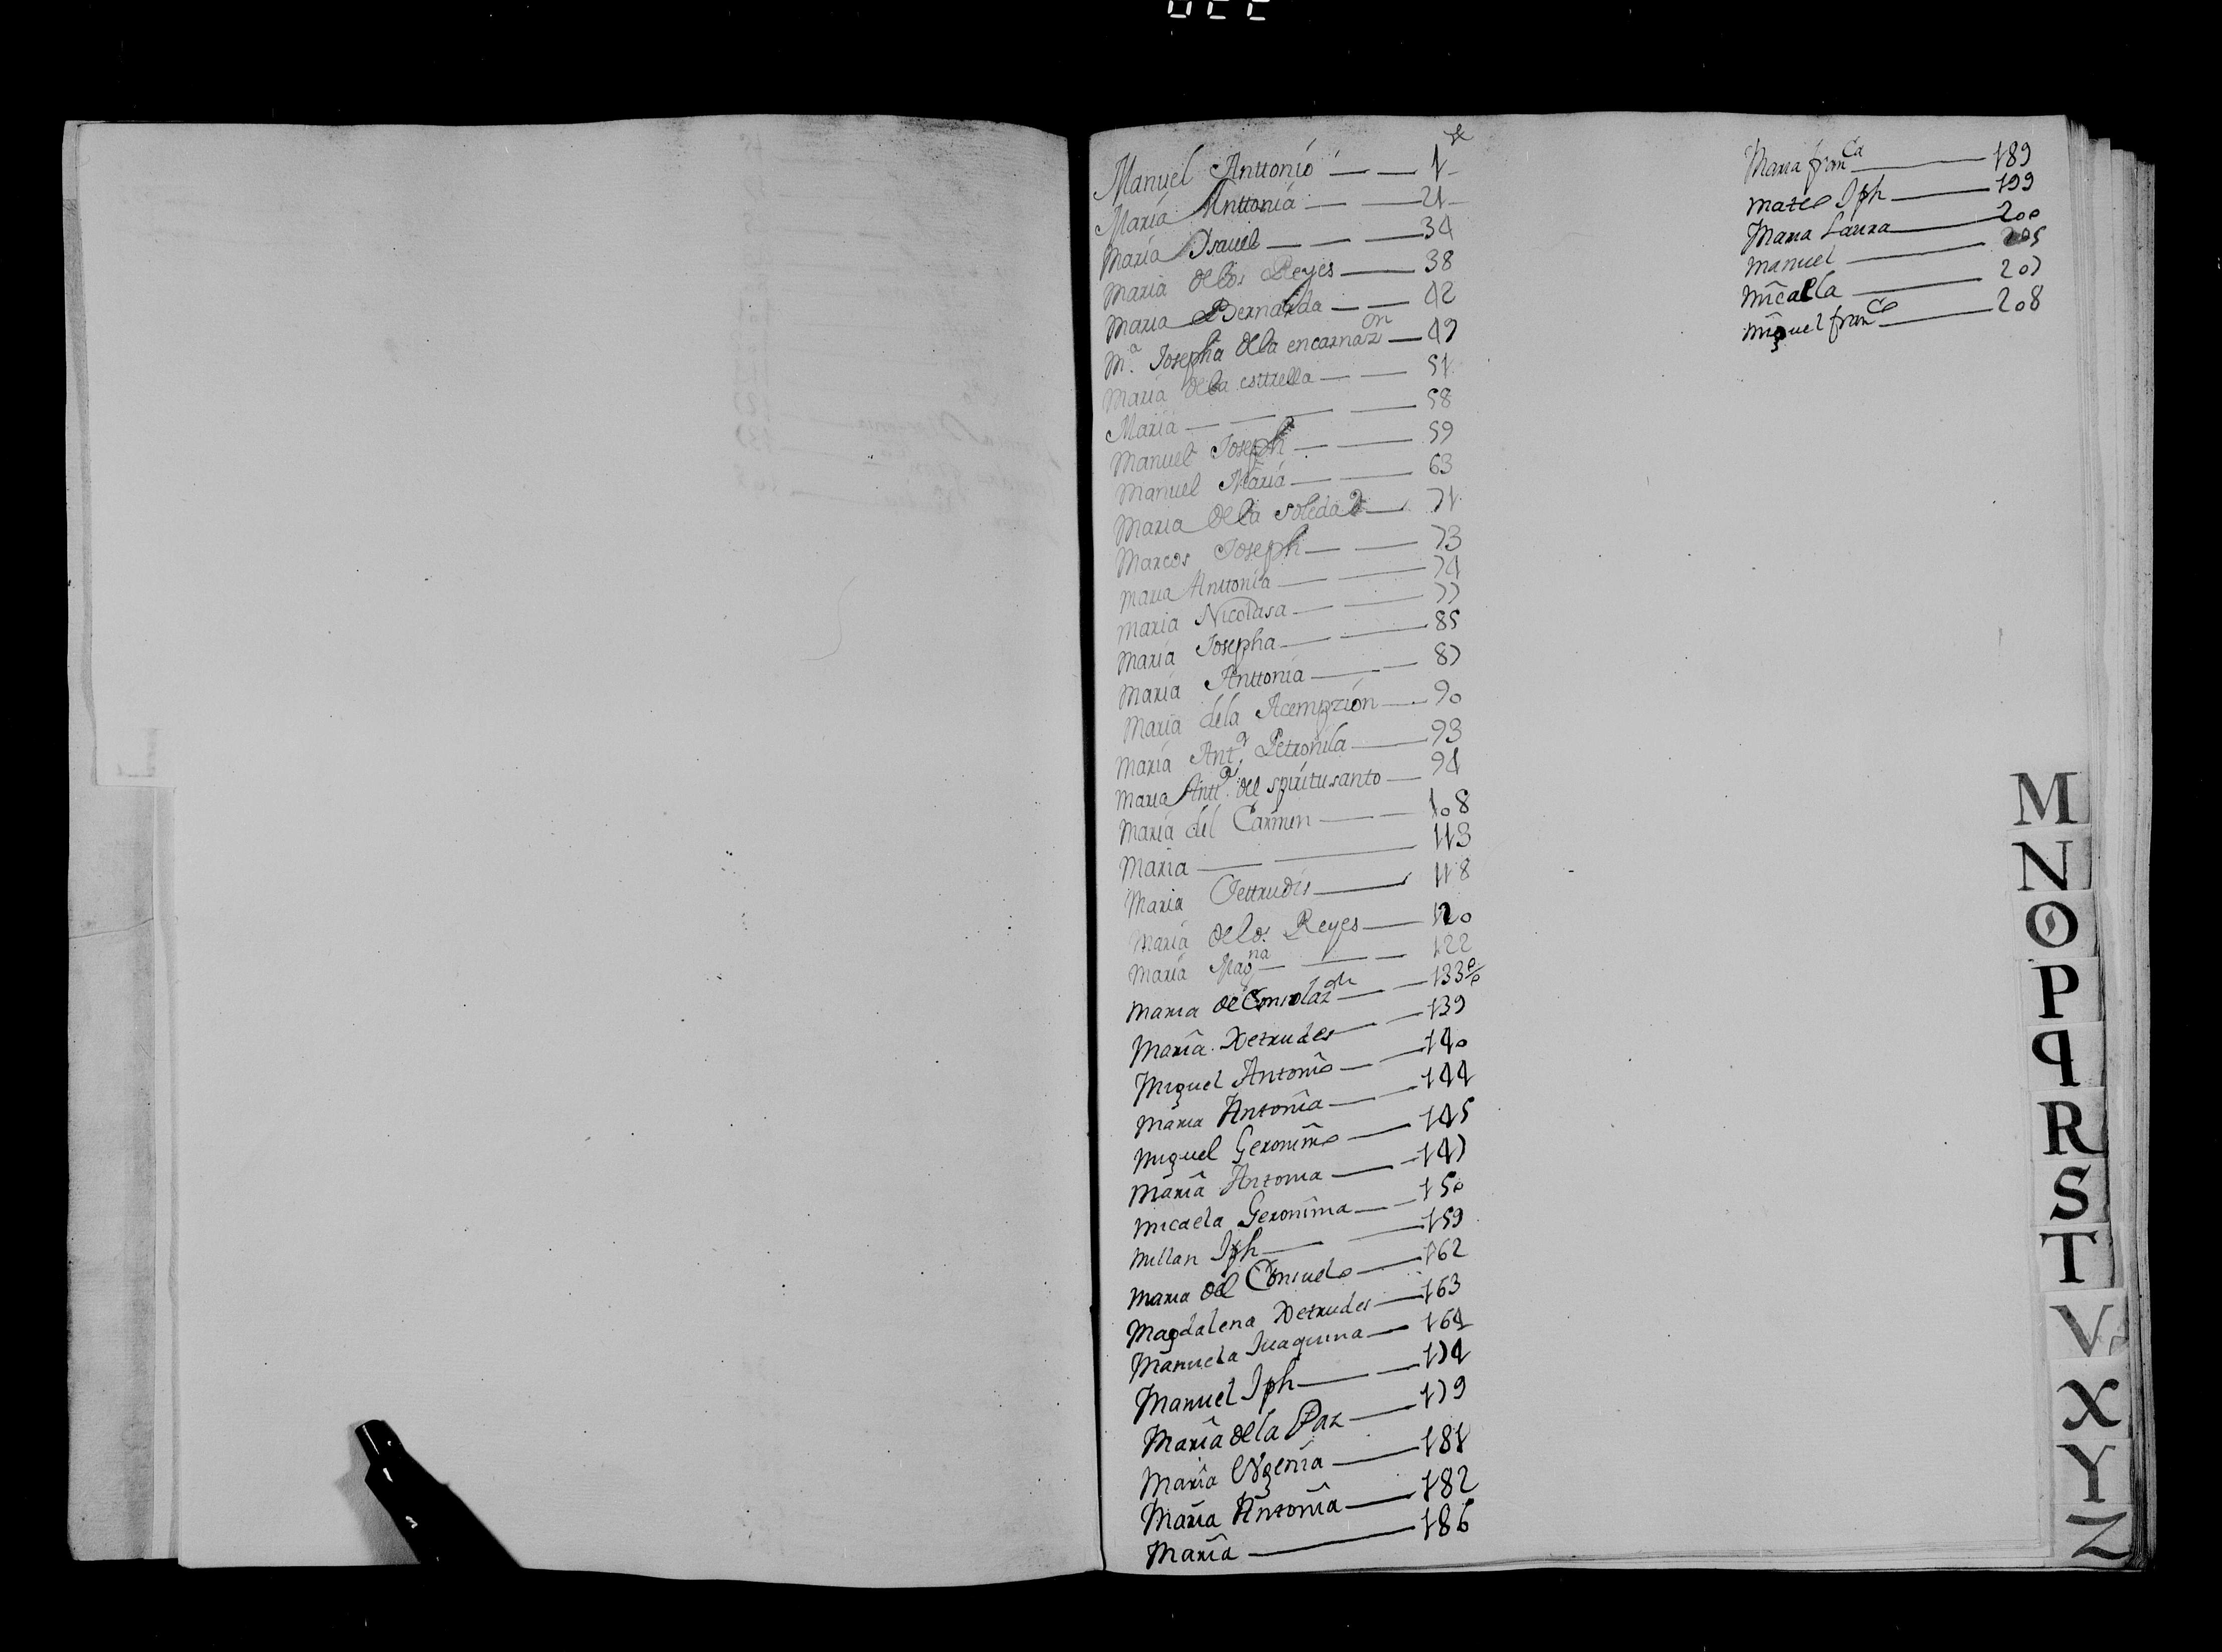 Manuel Anttonio 1
Maria Anttonia 21
Maria Ysavel 34
Maria de los Reyes 38
Maria Bernarda 42
M.ª Josepha de la encarnaz.on 49
Maria de la esttrella 51
Maria 58
Manuel Joseph 59
Manuel Maria 63
Maria de la soledad 71
Marcos Joseph 73
Maria Anttonia 74
Maria Nicolasa 77
Maria Josepha 85
Maria Anttonia 87
Maria de la Acempzion 90
Maria Ant.ª Petronila 93
Maria Antt.ª del spiritusanto 94
Maria del Carmen 108
Maria 113
Maria Gettrudis 118
Maria de los Reyes 120
Maria Mag.na 122
Maria de Consolaz.on 133
Maria Xetrudes 139
Miguel Antonio 140
Maria Antonia 144
Miguel Geronimo 145
Maria Antonia 147
Micaela Geronima 150
Millan Jph 159
Maria del Consuelo 162
Magdalena Xetrudes 163
Manuela Juaquina 164
Manuel Jph 174
Maria de la Paz 179
Maria Vgenia 181
Maria Antonia 182
Maria 186
Maria fran.ca 189
Mateo Jph 199
Maria Laura 200
Manuel 205
Micaela 207
Miguel fran.co 208
M
N
O
P
q
R
S
T
V
X
Y
Z